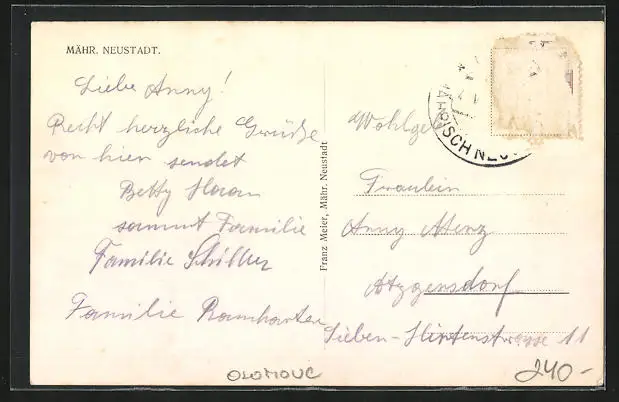 MÄHR. NEUSTADT.
Liebe Anny!
Recht herzliche Grüße
von hier sendet
Betty Haan
sammt Familie
Familie Schiller
Familie
Franz Meier, Mähr. Neustadt
Fräulein
Anny
Atzgersdorf
Sieben-Hirtenstrasse 11
OLOMOUC
240-